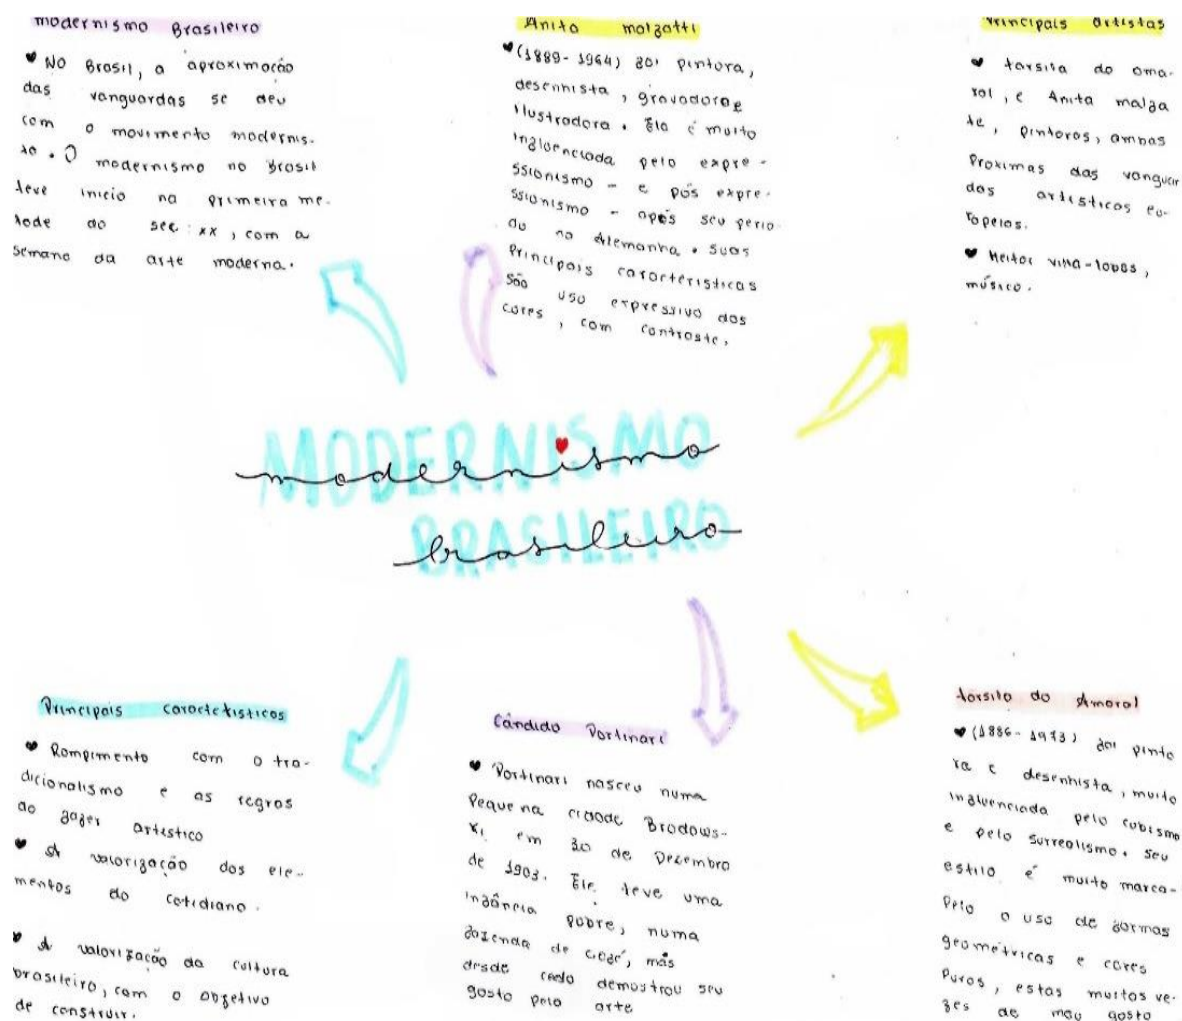 modernismo Brasileiro
♥ No Brasil, a aproximação
das vanguardas se deu
com o movimento modernis-
to. O modernismo no Brasil
teve inicio na primeira me-
tade do sec: xx, com a
semana da arte moderna.
Anita malgatti
♥ (1889-1964) foi pintora,
desennista, gravadora e
Ilustradora. Ela é muito
influenciada pelo expre-
ssionismo - e pós expre-
ssionismo - após seu perio-
do na Alemanha. Suas
Principais caracteristicas
são uso expressivo das
cores, com contraste.
Principais artistas
♥ tarsila do ama-
ral, e Anita malfa
te, pintoras, ambas
Proximas das vanguar
das artisticas eu-
ropeias.
♥ Heitor villa-lobos,
músico.
MODERNISMO
modernismo
BRASILEIRO
brasileiro
Principais caractetisticas
♥ Rompimento com o tra-
dicionalismo e as regras
do fazer artistico
♥ A valorização dos ele-
mentos do cotidiano.
♥ A valorização da cultura
brasileira, com o objetivo
de construir.
Cândido Portinari
♥ Portinari nasceu numa
Pequena cidade Brodows-
ki em 30 de Dezembro
de 1903. Ele teve uma
infância pobre, numa
fazenda de café, más
desde cedo demostrou seu
gosto pela arte
tarsila do Amaral
♥ (1886-1973) foi pinto
ra e desennista, muito
influenciada pelo cubismo
e pelo surrealismo. Seu
estilo é muito marca-
Pelo o uso de formas
geométricas e cores
Puras, estas muitas ve-
zes de mau gosto